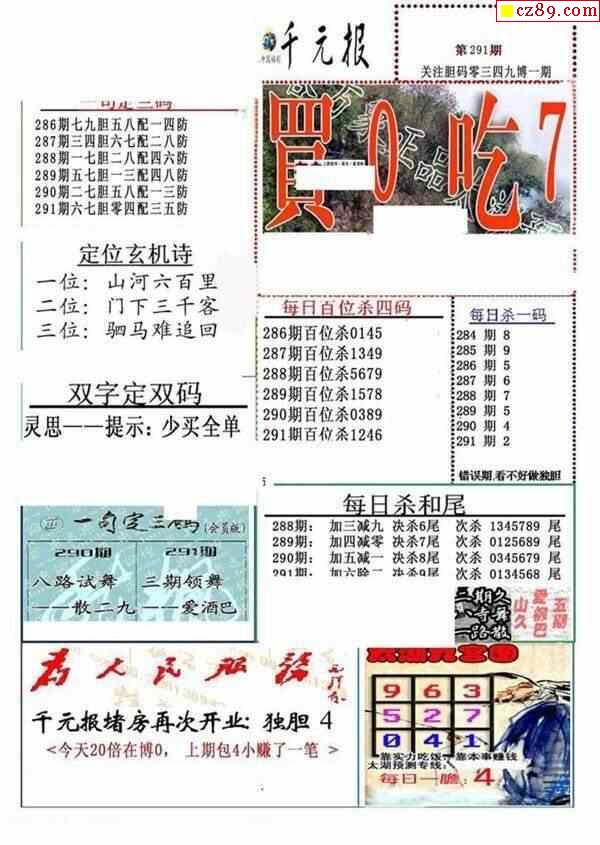 cz89.com
千元报
第291期
关注胆码零三四九博一期
一句定三码
286期七九胆五八配一四防
287期三四胆六七配二八防
288期一七胆二八配四六防
289期五七胆一三配四八防
290期二七胆五八配一三防
291期六七胆零四配三五防
買0吃7
定位玄机诗
一位：山河六百里
二位：门下三千客
三位：驷马难追回
每日百位杀四码
286期百位杀0145
287期百位杀1349
288期百位杀5679
289期百位杀1578
290期百位杀0389
291期百位杀1246
每日杀一码
284 期 8
285 期 9
286 期 5
287 期 6
288 期 7
289 期 7
290 期 4
291 期 2
错误期,看不好做独胆
双字定双码
灵思——提示：少买全单
每日杀和尾
288期： 加三减九 决杀6尾 次杀 1345789 尾
289期： 加四减零 决杀7尾 次杀 0125689 尾
290期： 加五减一 决杀8尾 次杀 0345679 尾
291期： 加六除二 决杀9尾 次杀 0134568 尾
正 一句定三码(会员版)
290期
八路试舞
——散二九
291期
三期领舞
——爱酒巴
为人民服务
千元报堵房再次开业：独胆 4
<今天20倍在博0， 上期包4小赚了一笔 >
9 6 3
5 2 7
0 4 1
靠实力吃饭,靠本事赚钱
太湖预测专线：
每日一胆：4